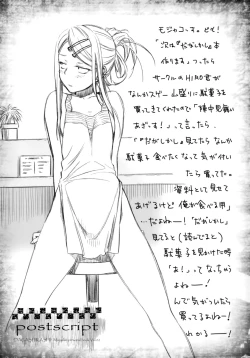 モジャコっす。どもー
「次は『だがしかし』本
作ります。」つったら
サークルのHIRO舎が
なんかスゲー山盛りに駄菓子を
買ってきてくれたので「陣中見舞い
あざーす!」って言ったら、
「『だがしかし』見てたらなんか
駄菓子食べたくなって気が付い
たら買ってた。
資料として見せて
あげるけど俺が食べる用」
…だよねー!「だがしかし」
見てると(読んでると)
駄菓子を見かけた時
「あ!」ってなっちゃう
よねー!
んで気がついたら
買ってるよねー!
わかるー!
postscript